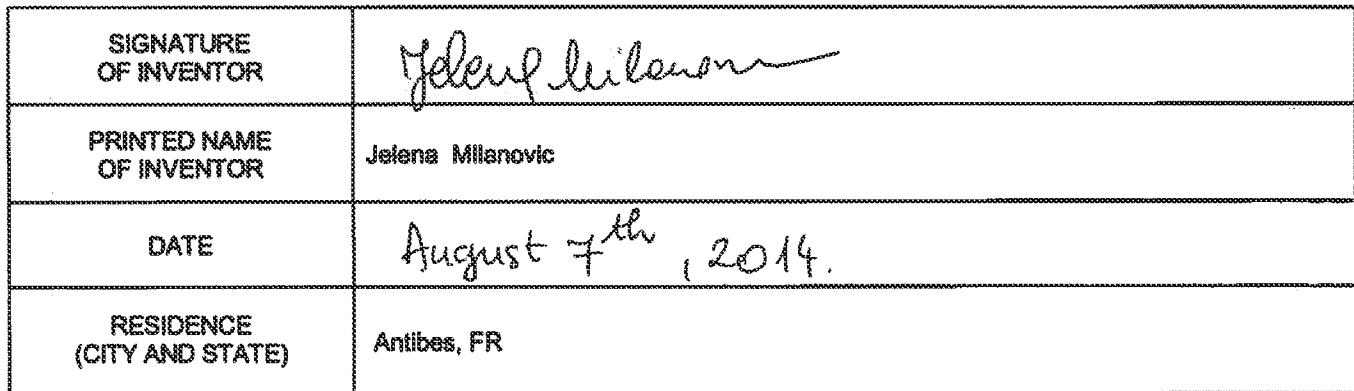 SIGNATURE
OF INVENTOR
Jelena Milanovic
PRINTED NAME
OF INVENTOR
Jelena Milanovic
DATE
August 7th, 2014.
RESIDENCE
(CITY AND STATE)
Antibes, FR